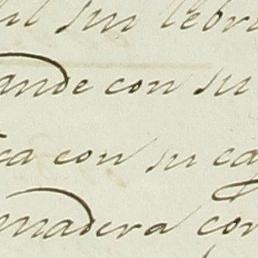 sin lebri
ande con su
ca con su ca
madera con